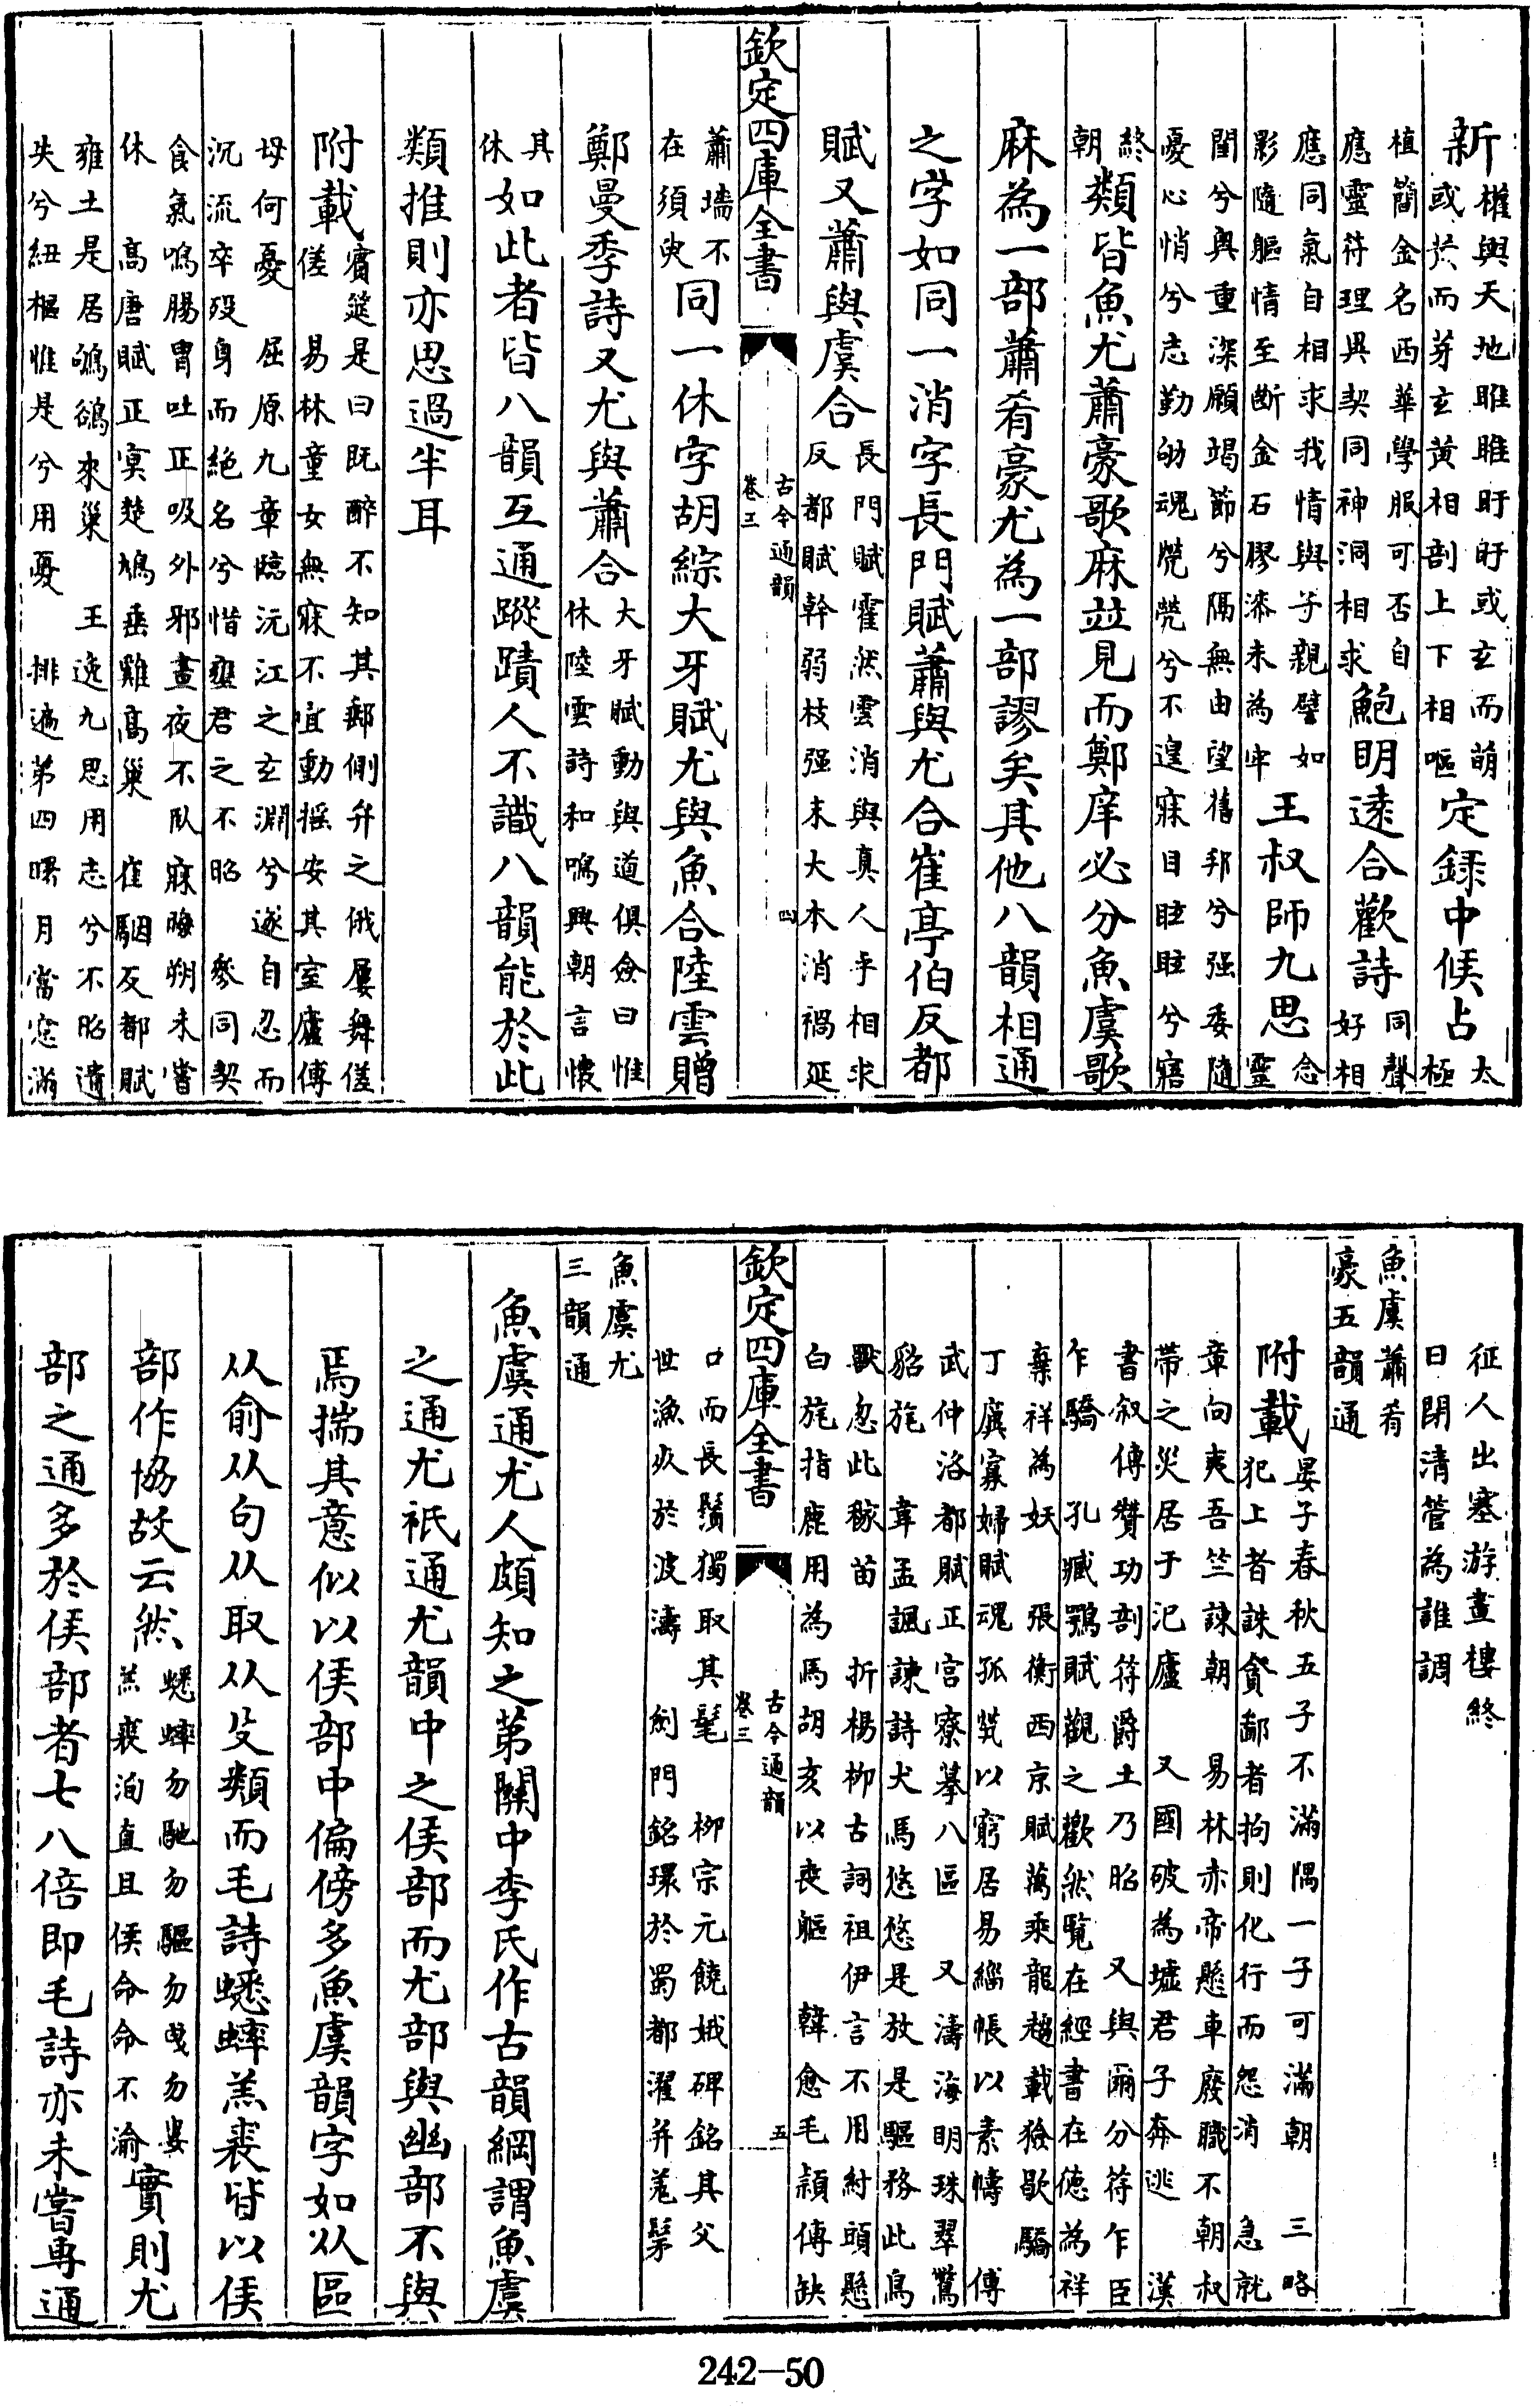 新
權輿天地雎雎盱盱或玄而萌
或黃而芽玄黃相剖上下相嘔
定録中候占
太
極
植簡金名西華學服可否自
應靈符理異契同神洞相求
鮑明逺合歡詩
同聲
好相
應同氣自相求我情與子親譬如
影隨軀情至斷金石膠漆未為牢
王叔師九思
念
靈
閨兮輿重深願竭節兮隔無由望舊邦兮强委隨
憂心悄兮志勤劬魂煢煢兮不遑寐目眩眩兮寤
終
朝
類皆魚尤蕭豪歌麻竝見而鄭庠必分魚虞歌
麻為一部蕭肴豪尤為一部謬矣其他八韻相通
之字如同一消字長門賦蕭與尤合崔亭伯反都
賦又蕭與虞合
長門賦霍然雲消與真人乎相求
反都賦幹弱枝强末大本消禍延
欽定四庫全書
古今通韻
卷三
四
蕭墻不
在須臾
同一休字胡綜大牙賦尤與魚合陸雲贈
鄭曼季詩又尤與蕭合
大牙賦動與道俱僉曰惟
休陸雲詩和鳴興朝言懐
其
休
如此者皆八韻互通蹤蹟人不識八韻能於此
類推則亦思過半耳
附載
賓筵是曰既醉不知其郵側弁之俄屢舞傞
傞 易林童女無寐不宜動摇安其室廬傳
母何憂 屈原九章臨沅江之玄淵兮遂自忍而
沉流卒殁身而絶名兮惜壅君之不昭 參同契
食氣鳴腸胃吐正吸外邪晝夜不臥寐晦朔未嘗
休 高唐賦正㝠楚鳩垂雞高巢 崔駰反都賦
雍土是居鴝鵒來巢 王逸九思用志兮不昭遺
失兮紐樞惟是兮用憂 排遍第四曙月當窓滿
征人出塞游畫樓終
日閉清管為誰調
魚虞蕭肴
豪五韻通
附載
晏子春秋五子不滿隅一子可滿朝 三略
犯上者誅貪鄙者拘則化行而怨消 急就
章向夷吾竺諫朝 易林赤帝懸車廢職不朝叔
帶之災居于氾廬 又國破為墟君子奔逃 漢
書叙傳贊功剖符爵土乃昭 又與爾分符乍臣
乍驕 孔臧鴞賦觀之歡然覧在經書在德為祥
棄祥為妖 張衡西京賦萬乘龍趨載獫歇驕
丁廙寡婦賦魂孤煢以窮居易緇帳以素幬 傅
武仲洛都賦正宫寮摹八區 又濤海明珠翠鷩
貂旄 韋孟諷諫詩犬馬悠悠是放是驅務此鳥
獸忽此稼苗 折楊柳古詞祖伊言不用紂頭懸
白旄指鹿用為馬胡亥以喪軀 韓愈毛穎傳缺
欽定四庫全書
古今通韻
卷三
五
口而長鬚獨取其髦 柳宗元饒娥碑銘其父
世漁火於波濤 劍門銘環於蜀都濯并羗髳
魚虞尤
三韻通
魚虞通尤人頗知之第闗中李氏作古韻綱謂魚虞
之通尤祇通尤韻中之侯部而尤部與幽部不與
焉揣其意似以侯部中偏傍多魚虞韻字如从區
从俞从句从取从殳類而毛詩蟋蟀羔裘皆以侯
部作恊故云然
蟋蟀勿馳勿驅勿曳勿婁
羔裘洵直且侯命命不渝
實則尤
部之通多於侯部者七八倍即毛詩亦未嘗專通
242-50